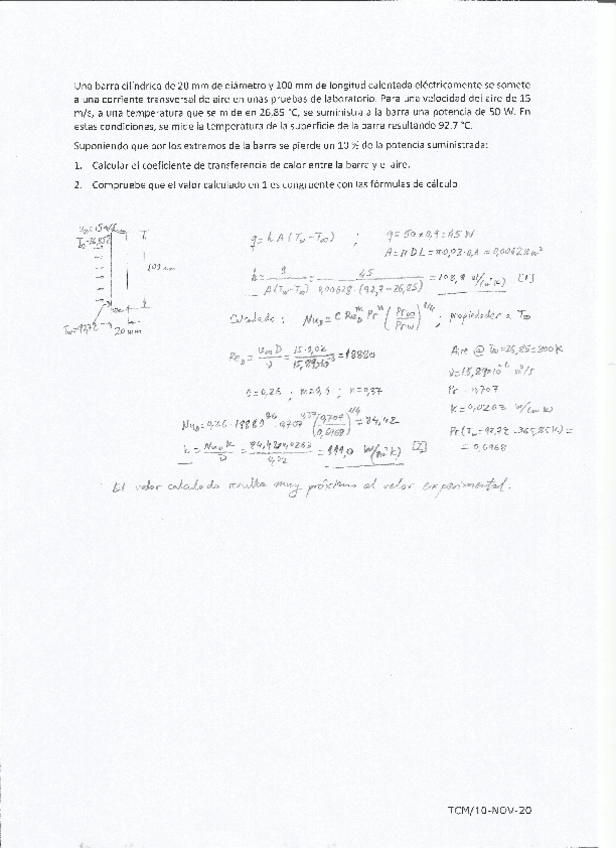 Una barra cilíndrica de 20 mm de diámetro y 100 mm de longitud calentada eléctricamente se somete
a una corriente transversal de aire en unas pruebas de laboratorio. Para una velocidad del aire de 15
m/s, a una temperatura que se mide en 26.85 °C, se suministra a la barra una potencia de 50 W. En
estas condiciones, se mide la temperatura de la superficie de la barra resultando 92.7 °C.
Suponiendo que por los extremos de la barra se pierde un 10 % de la potencia suministrada:
1. Calcular el coeficiente de transferencia de calor entre la barra y el aire.
2. Compruebe que el valor calculado en 1 es congruente con las fórmulas de cálculo
100 mm
20 mm
q = h A (Tw - T∞) ; q = 50 × 0,9 = 45 W
A = π D L = π·0,02·0,1 = 0,00628 m²
h = q / A (Tw - T∞) = 45 / 0,00628 · (92,7 - 26,85) = 108,8 W/(m² K) [1]
Calculado : Nu_D = C Re_D^m Pr^n (Pr∞/Prw)^1/4 ; propiedades a T∞
Re_D = u∞ D / ν = 15·0,02 / 15,89×10^-6 = 18880
Aire @ T∞ = 26,85 = 300 K
ν = 15,89×10^-6 m²/s
C = 0,26 ; m = 0,6 ; n = 0,37
Pr = 0,707
k = 0,0263 W/(m K)
Nu_D = 0,26 · 18880^0,6 · 0,707^0,37 (0,707/0,6968)^1/4 = 84,42
Pr (Tw = 92,7 = 365,85 K) =
= 0,6968
h = Nu_D k / D = 84,42·0,0263 / 0,02 = 111,0 W/(m² K) [2]
El valor calculado resulta muy próximo al valor experimental.
TCM/10-NOV-20